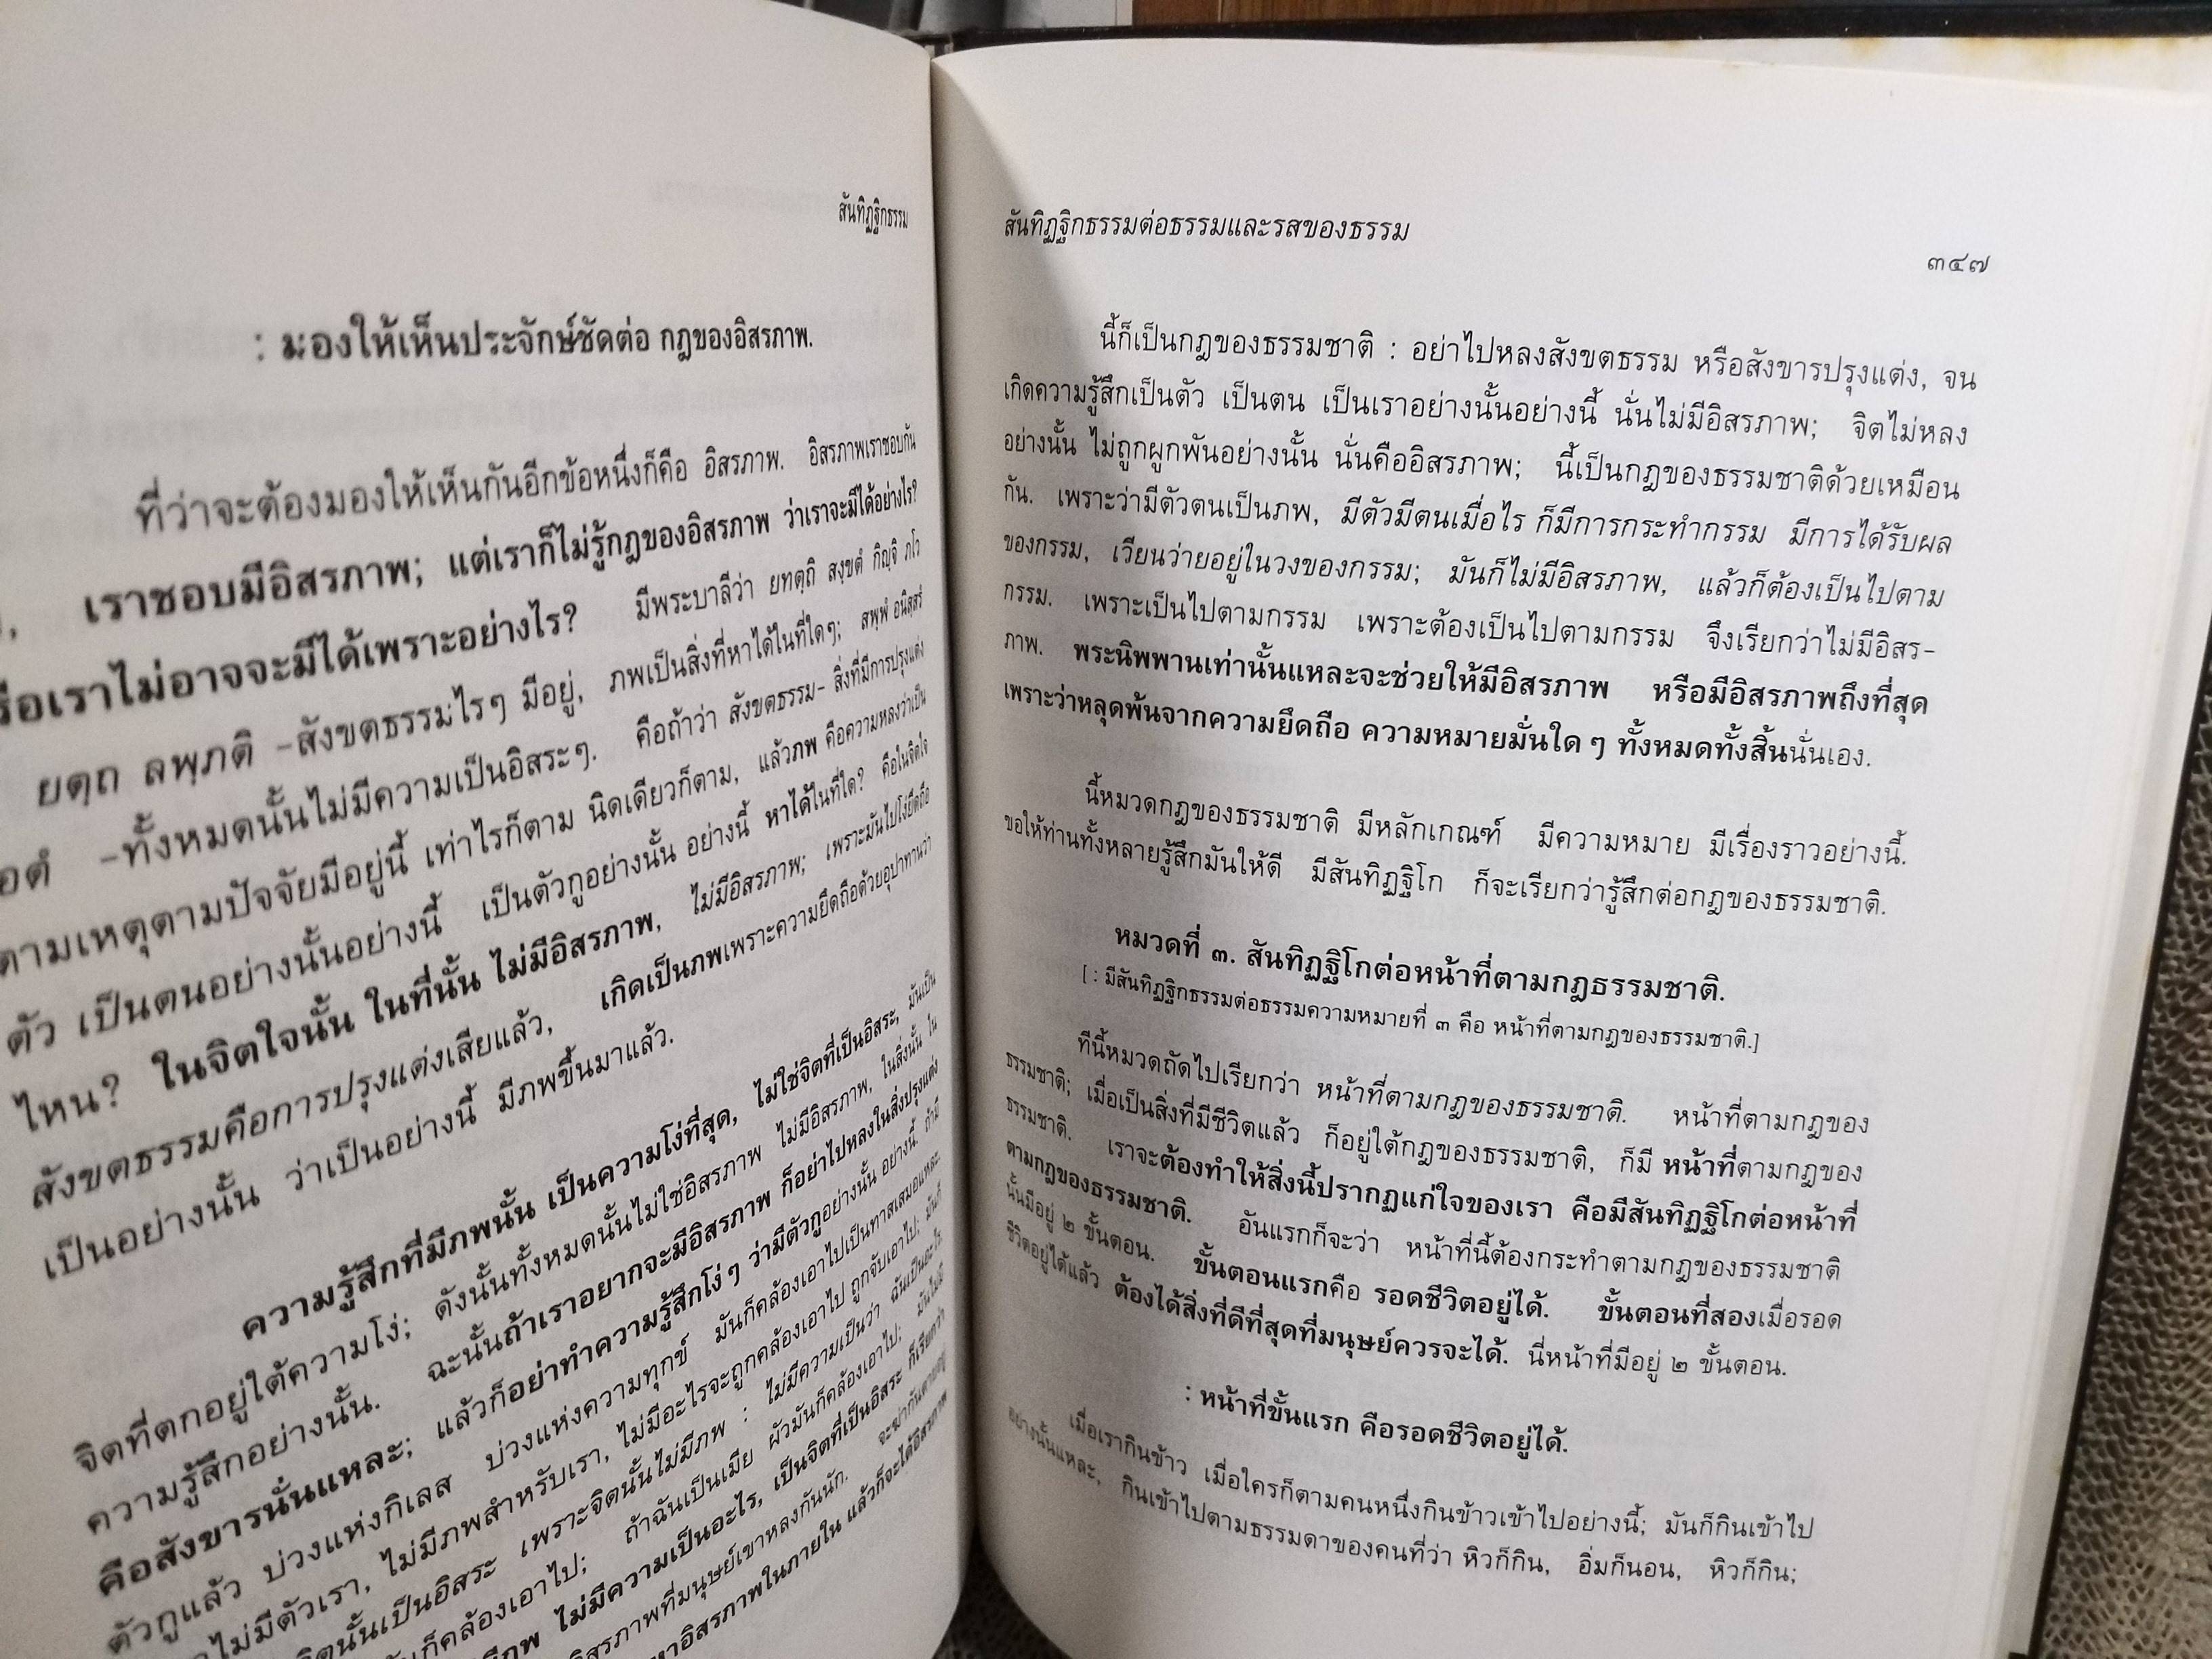 สันทิฏฐิกธรรม
: มองให้เห็นประจักษ์ชัดต่อ กฎของอิสรภาพ.
ที่ว่าจะต้องมองให้เห็นกันอีกข้อหนึ่งก็คือ อิสรภาพ. อิสรภาพเราชอบกัน
เราชอบมีอิสรภาพ; แต่เราก็ไม่รู้กฎของอิสรภาพ ว่าเราจะมีได้อย่างไร?
หรือเราไม่อาจจะมีได้เพราะอย่างไร? มีพระบาลีว่า ยทตฺถิ สงฺขตํ กิญฺจิ ภโว
ยตฺถ ลพฺภติ -สังขตธรรมไรๆ มีอยู่, ภพเป็นสิ่งที่หาได้ในที่ใดๆ; สพฺพํ อนิสฺสรํ
-ทั้งหมดนั้นไม่มีความเป็นอิสระๆ. คือถ้าว่า สังขตธรรม- สิ่งที่มีการปรุงแต่ง
ตามเหตุตามปัจจัยมีอยู่นี้ เท่าไรก็ตาม นิดเดียวก็ตาม, แล้วภพ คือความหลงว่าเป็น
ตัว เป็นตนอย่างนั้นอย่างนี้ เป็นตัวกูอย่างนั้น อย่างนี้ หาได้ในที่ใด? คือในจิตใจ
ไหน? ในจิตใจนั้น ในที่นั้น ไม่มีอิสรภาพ, ไม่มีอิสรภาพ; เพราะมันไปโง่ยึดถือ
สังขตธรรมคือการปรุงแต่งเสียแล้ว, เกิดเป็นภพเพราะความยึดถือด้วยอุปาทานว่า
เป็นอย่างนั้น ว่าเป็นอย่างนี้ มีภพขึ้นมาแล้ว.
ความรู้สึกที่มีภพนั้น เป็นความโง่ที่สุด, ไม่ใช่จิตที่เป็นอิสระ, มันเป็น
จิตที่ตกอยู่ใต้ความโง่; ดังนั้นทั้งหมดนั้นไม่ใช่อิสรภาพ ไม่มีอิสรภาพ, ในสิ่งนั้น ใน
ความรู้สึกอย่างนั้น. ฉะนั้นถ้าเราอยากจะมีอิสรภาพ ก็อย่าไปหลงในสิ่งปรุงแต่ง
คือสังขารนั่นแหละ; แล้วก็อย่าทำความรู้สึกโง่ๆ ว่ามีตัวกูอย่างนั้น อย่างนี้. ถ้ามี
ตัวกูแล้ว บ่วงแห่งกิเลส บ่วงแห่งความทุกข์ มันก็คล้องเอาไปเป็นทาสเสมอแหละ.
ไม่มีตัวเรา, ไม่มีภพสำหรับเรา, ไม่มีอะไรจะถูกคล้องเอาไป ถูกจับเอาไป; มันก็
จิตนั้นเป็นอิสระ เพราะจิตนั้นไม่มีภพ : ไม่มีความเป็นว่า ฉันเป็นอะไร
ก็คล้องเอาไป; ถ้าฉันเป็นเมีย ผัวมันก็คล้องเอาไป; มันไม่มี
ภพ ไม่มีความเป็นอะไร, เป็นจิตที่เป็นอิสระ ก็เรียกว่า
อิสรภาพที่มนุษย์เขาหลงกันนัก.
หาอิสรภาพในภายใน แล้วก็จะได้อิสรภาพ
สันทิฏฐิกธรรมต่อธรรมและรสของธรรม
๓๔๗
นี้ก็เป็นกฎของธรรมชาติ : อย่าไปหลงสังขตธรรม หรือสังขารปรุงแต่ง, จน
เกิดความรู้สึกเป็นตัว เป็นตน เป็นเราอย่างนั้นอย่างนี้ นั่นไม่มีอิสรภาพ; จิตไม่หลง
อย่างนั้น ไม่ถูกผูกพันอย่างนั้น นั่นคืออิสรภาพ; นี้เป็นกฎของธรรมชาติด้วยเหมือน
กัน. เพราะว่ามีตัวตนเป็นภพ, มีตัวมีตนเมื่อไร ก็มีการกระทำกรรม มีการได้รับผล
ของกรรม, เวียนว่ายอยู่ในวงของกรรม; มันก็ไม่มีอิสรภาพ, แล้วก็ต้องเป็นไปตาม
กรรม. เพราะเป็นไปตามกรรม เพราะต้องเป็นไปตามกรรม จึงเรียกว่าไม่มีอิสร-
ภาพ. พระนิพพานเท่านั้นแหละจะช่วยให้มีอิสรภาพ หรือมีอิสรภาพถึงที่สุด
เพราะว่าหลุดพ้นจากความยึดถือ ความหมายมั่นใด ๆ ทั้งหมดทั้งสิ้นนั่นเอง.
นี้หมวดกฎของธรรมชาติ มีหลักเกณฑ์ มีความหมาย มีเรื่องราวอย่างนี้.
ขอให้ท่านทั้งหลายรู้สึกมันให้ดี มีสันทิฏฐิโก ก็จะเรียกว่ารู้สึกต่อกฎของธรรมชาติ.
หมวดที่ ๓. สันทิฏฐิโกต่อหน้าที่ตามกฎธรรมชาติ.
[ : มีสันทิฏฐิกธรรมต่อธรรมความหมายที่ ๓ คือ หน้าที่ตามกฎของธรรมชาติ.]
ทีนี้หมวดถัดไปเรียกว่า หน้าที่ตามกฎของธรรมชาติ. หน้าที่ตามกฎของ
ธรรมชาติ; เมื่อเป็นสิ่งที่มีชีวิตแล้ว ก็อยู่ใต้กฎของธรรมชาติ, ก็มี หน้าที่ตามกฎของ
ธรรมชาติ. เราจะต้องทำให้สิ่งนี้ปรากฏแก่ใจของเรา คือมีสันทิฏฐิโกต่อหน้าที่
ตามกฎของธรรมชาติ. อันแรกก็จะว่า หน้าที่นี้ต้องกระทำตามกฎของธรรมชาติ
นั้นมีอยู่ ๒ ขั้นตอน. ขั้นตอนแรกคือ รอดชีวิตอยู่ได้. ขั้นตอนที่สองเมื่อรอด
ชีวิตอยู่ได้แล้ว ต้องได้สิ่งที่ดีที่สุดที่มนุษย์ควรจะได้. นี่หน้าที่มีอยู่ ๒ ขั้นตอน.
: หน้าที่ขั้นแรก คือรอดชีวิตอยู่ได้.
เมื่อเรากินข้าว เมื่อใครก็ตามคนหนึ่งกินข้าวเข้าไปอย่างนี้; มันก็กินเข้าไป
อย่างนั้นแหละ, กินเข้าไปตามธรรมดาของคนที่ว่า หิวก็กิน, อิ่มก็นอน, หิวก็กิน;